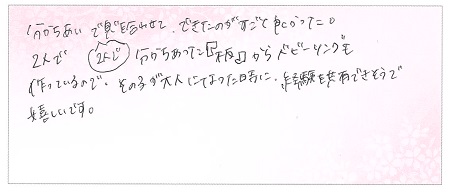 分かちあいで息を合わせて、できたのがすごく良かった。
2人で 2人で 分かちあった『板』からベビーリングも
作っているので、その子が大人になった時に、経験を共有できそうで
嬉しいです。